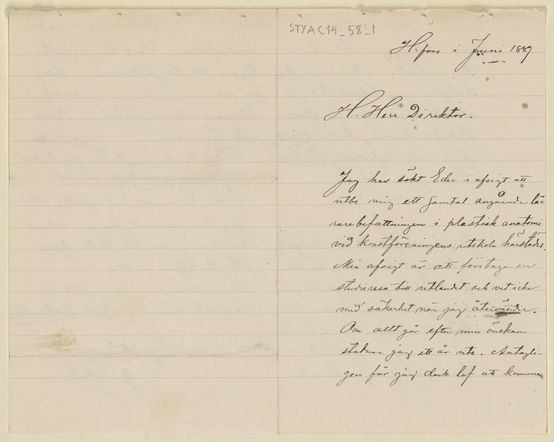 STYAC14_58_1
H:fors i Juni 1887
H. Herr Direktor.
Jag har sökt Eder i afsigt att
utbe mig ett samtal angående lä-
rarebefattningen i plastisk anatomi
vid konstföreningens ritskola härstädes.
Min afsigt är att företaga en
studieresa till utlandet och vet icke
med säkerhet när jag återvänder.
Om allt går efter min önskan
stadnar jag ett år ute. Antagli-
gen får jag dock lof att komma